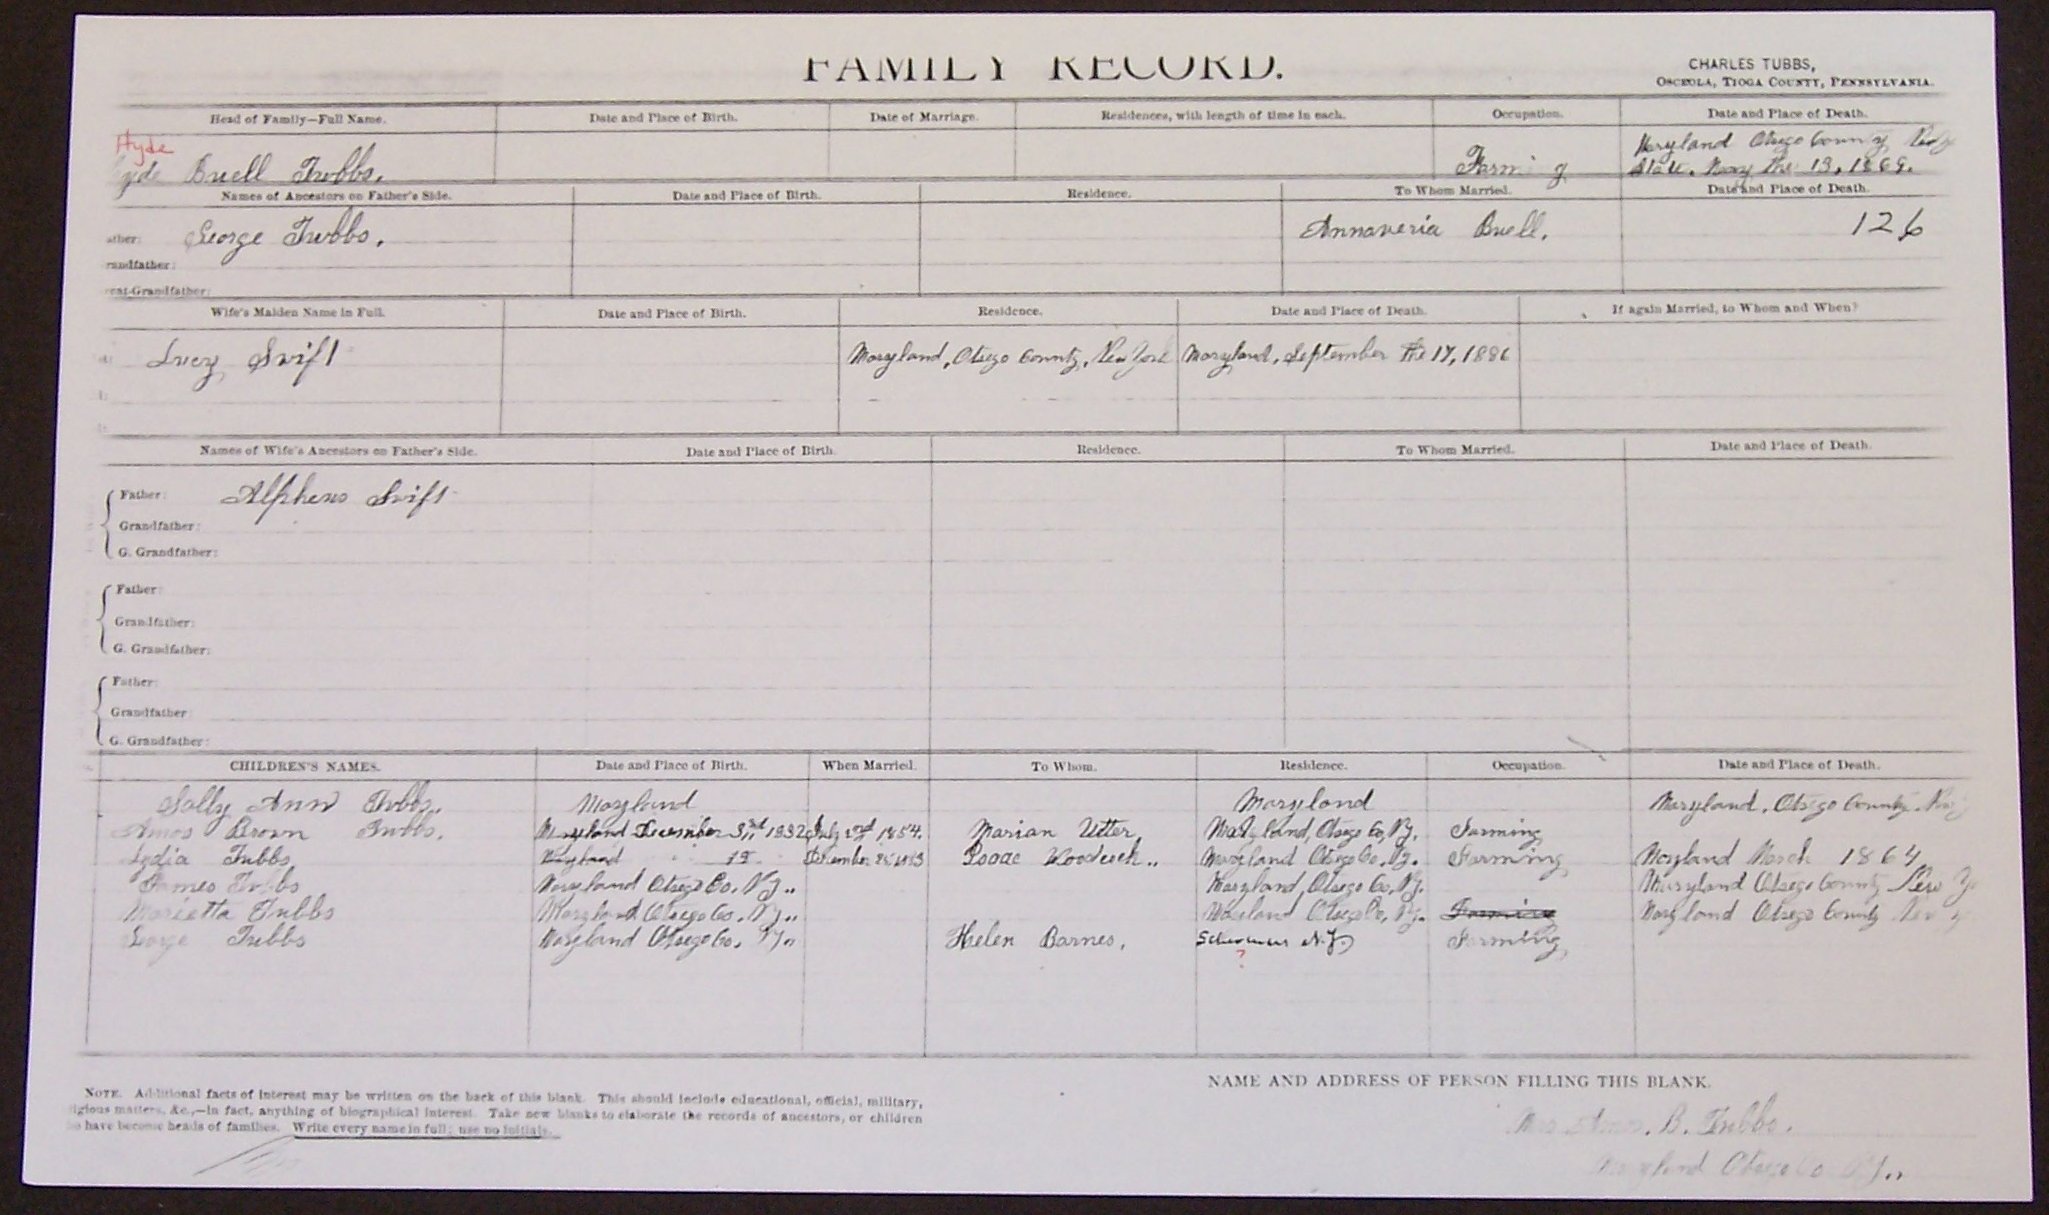 FAMILY RECORD.
CHARLES TUBBS,
OSCEOLA, TIOGA COUNTY, PENNSYLVANIA.
Head of Family—Full Name. Date and Place of Birth. Date of Marriage. Residences, with length of time in each. Occupation. Date and Place of Death.
Hyde
Buell Tubbs. Farming Maryland Otsego County
State. the 13, 1869.
Names of Ancestors on Father's Side. Date and Place of Birth. Residence. To Whom Married. Date and Place of Death.
ather: George Tubbs. Annaveria Buell. 126
randfather:
reat-Grandfather:
Wife's Maiden Name in Full. Date and Place of Birth. Residence. Date and Place of Death. If again Married, to Whom and When?
Lucy Swift Maryland, Otsego County, New York Maryland, September the 17, 1886
Names of Wife's Ancestors on Father's Side. Date and Place of Birth. Residence. To Whom Married. Date and Place of Death.
Father: Alpheus Swift
Grandfather:
G. Grandfather:
Father:
Grandfather:
G. Grandfather:
Father:
Grandfather
G. Grandfather:
CHILDREN'S NAMES. Date and Place of Birth. When Married. To Whom. Residence. Occupation. Date and Place of Death.
Sally Ann Tubbs. Maryland Maryland Maryland, Otsego County.
Amos Brown Tubbs. Maryland December 1832 July 2nd 1854. Marian Utter, Maryland, Otsego Co, N.Y. Farming
Lydia Tubbs. Maryland December Isaac Woodcock.. Maryland Otsego Co. N.Y. Farming Maryland March 1864
James Tubbs Maryland Otsego Co. N.Y.. Maryland, Otsego Co, N.Y. Maryland Otsego County New
Marietta Tubbs Maryland Otsego Co. N.Y.. Maryland Otsego Co, N.Y. Farming Maryland Otsego County
George Tubbs Maryland Otsego Co. N.Y.. Helen Barnes, N.Y. Farming
?
NAME AND ADDRESS OF PERSON FILLING THIS BLANK.
NOTE. Additional facts of interest may be written on the back of this blank. This should include educational, official, military,
igious matters, &c.,—in fact, anything of biographical interest. Take new blanks to elaborate the records of ancestors, or children
o have become heads of families. Write every name in full; use no initials.
Mrs Amos. B. Tubbs.
Maryland Otsego Co N.Y..